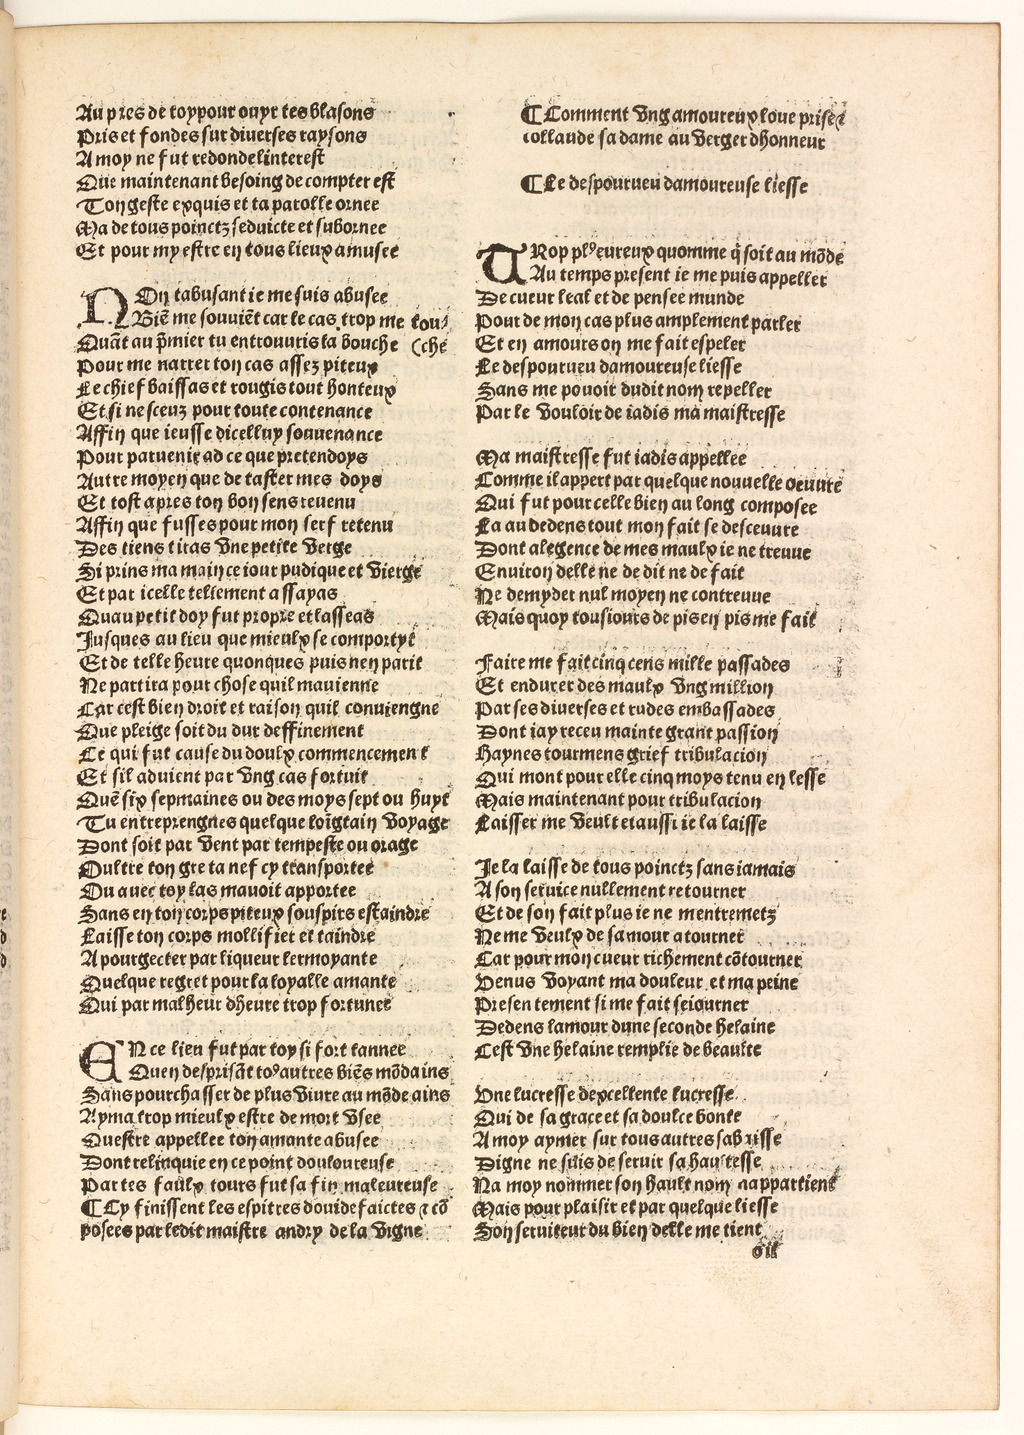 Aupres de toy pour ouyr tes blasons
Pris et fondes sur diuerses raysons
A moy ne fut redonde linterest
Que maintenant besoing de compter est
Ton geste exquis et ta parolle ornee
Ma de tous poinctz seduicte et subornee
Et pour my estre en tous lieux amusee
NOn tabusant ie me suis abusee
Biē me souuiēt car le cas trop me tou
Quāt au p̄mier tu entrouuris la bouche (che
Pour me narrer ton cas assez piteux
Le chief baissas et rougis tout honteux
Et si ne sceuz pour toute contenance
Affin que ieusse dicelluy souuenance
Pour paruenir ad ce que pretendoys
Autre moyen que de taster mes doys
Et tost apres ton bon sens reuenu
Affin que fusses pour mon serf retenu
Des tiens tiras vne petite verge
Si prins ma main ce iour pudique et vierge
Et par icelle tellement assayas
Quau petit doy fut propre et lasseas
Jusques au lieu que mieulx se comportyt
Et de telle heure quonques puis nen partit
Ne partira pour chose quil mauienne
Car cest bien droit et raison quil conuiengne
Que pleige soit du dur deffinement
Ce qui fut cause du doulx commencement
Et sil aduient par vng cas fortuit
Quē six sepmaines ou des moys sept ou huyt
Tu entreprengnes quelque loīgtain voyage
Dont soit par vent par tempeste ou orage
Oultre ton gre ta nef cy transportee
Ou auec toy las mauoit apportee
Sans en ton corps piteux souspirs estaindre
Laisse ton corps mollifier et taindre
A pourgecter par liqueur lermoyante
Quelque regret pour la loyalle amante
Qui par malheur dheure trop fortunee
EN ce lieu fut par toy si fort tannee
Quen desprisāt toꝰ autres biēs mōdains
Sans pourchasser de plus viure au mōde ains
Ayma trop mieulx estre de mort vsee
Questre appellee ton amante abusee
Dont relinquie en ce point douloureuse
Par tes faulx tours fut sa fin maleureuse
¶ Cy finissent les espitres douide faictes ⁊ cō
posees par ledit maistre andry de la vigne
¶ Comment vng amoureux loue prise ⁊
collaude sa dame au verger dhonneur
¶ Le despourueu damoureuse liesse
TRop plꝰ eureux quomme q̄ soit au mōde
Au temps present ie me puis appeller
De cueur leal et de pensee munde
Pour de mon cas plus amplement parler
Et en amours on me fait espeler
Le despourueu damoureuse liesse
Sans me pouoir dudit nom repeller
Par le vouloir de iadis ma maistresse
Ma maistresse fut iadis appellee
Comme il appert par quelque nouuelle oeuure
Qui fut pour celle bien au long composee
La au dedens tout mon fait se desceuure
Dont alegence de mes maulx ie ne treuue
Enuiron delle ne de dit ne de fait
Ne demyder nul moyen ne contreuue
Mais quoy tousiours de pis en pis me fait
Faire me fait cinq cens mille passades
Et endurer des maulx vng million
Par ses diuerses et rudes embassades
Dont iay receu mainte grant passion
Haynes tourmens grief tribulacion
Qui mont pour elle cinq moys tenu en lesse
Mais maintenant pour tribulacion
Laisser me veult et aussi ie la laisse
Je la laisse de tous poinctz sans iamais
A son seruice nullement retourner
Et de son fait plus ie ne mentremetz
Ne me veulx de samour atourner
Car pour mon cueur richement cōtourner
Venus voyant ma douleur et ma peine
Presentement si me fait seiourner
Dedens lamour dune seconde helaine
Cest vne helaine remplie de beaulte
Vne lucresse dexcellente lucresse
Qui de sa grace et sa doulce bonte
A moy aymer sur tous autres sabrisse
Digne ne suis de seruir sa haultesse
Na moy nommer son hault nom nappartient
Mais pour plaisir et par quelque liesse
Son seruiteur du bien delle me tient
oii